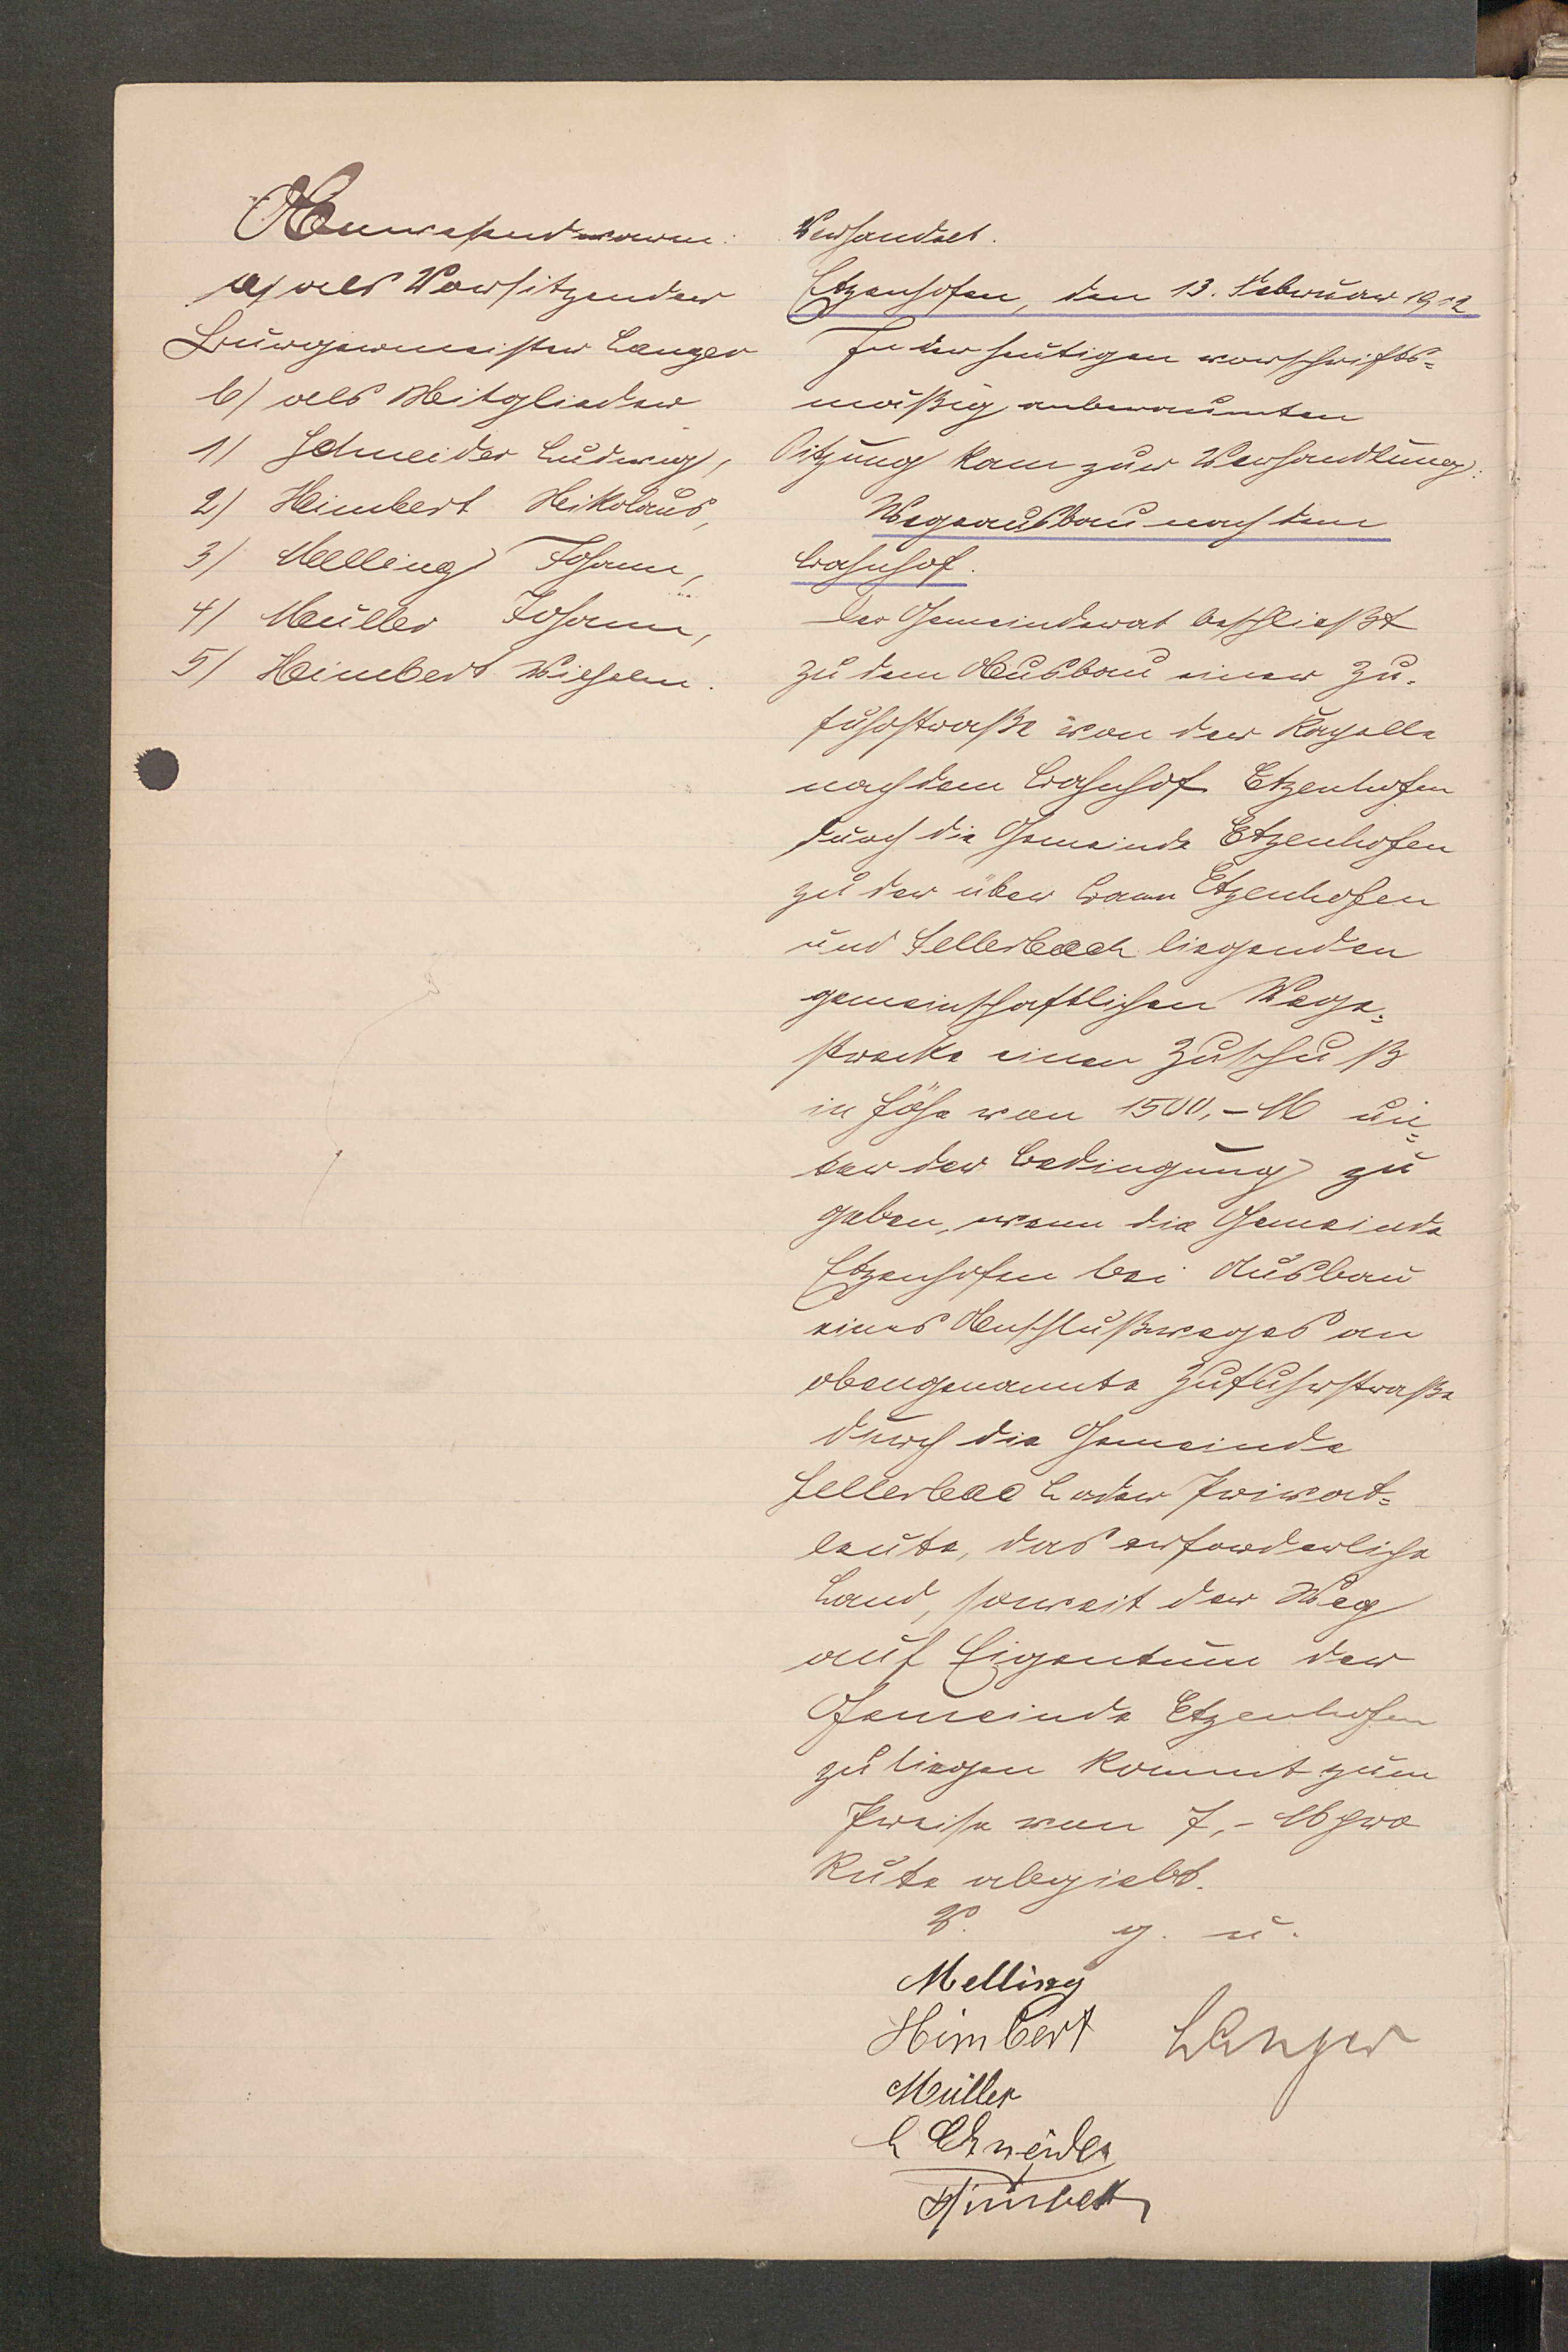 Anwesend waren:
a) als Vorsitzender
Bürgermeister Langer
b) als Mitglieder
1) Schneider Ludwig,
2) Heimbert Nikolaus,
3) Melling Johann,
4) Müller Johann,
5) Heimbert Wilhelm.
Verhandelt.
Etzenhofen, den 13. Februar 1912
In der heutigen vorschrifts-
mäßig anberaumten
Sitzung kam zur Verhandlung:
Wegeausbau nach dem
Bahnhof.
Der Gemeinderat beschließt
zu dem Ausbau einer Zu-
fuhrstraße von der Kapelle
nach dem Bahnhof Etzenhofen
durch die Gemeinde Etzenhofen
zu der über Bann Etzenhofen
und Sellerbach liegenden
gemeinschaftlichen Wege-
strecke einen Zuschuß
in Höhe von 1500,- M un-
ter der Bedingung zu
geben, wenn die Gemeinde
Etzenhofen bei Ausbau
eines Anschlußweges an
obengenannte Zufuhrstraße
durch die Gemeinde
Sellerbach oder Privat-
leute, das erforderliche
Land, soweit der Weg
auf Eigentum der
Gemeinde Etzenhofen
zu liegen kommt zum
Preise von 7,- M pro
Rute abgiebt.
V. g. u.
Melling
Himbert Langer
Müller
L Schneider
Himbert